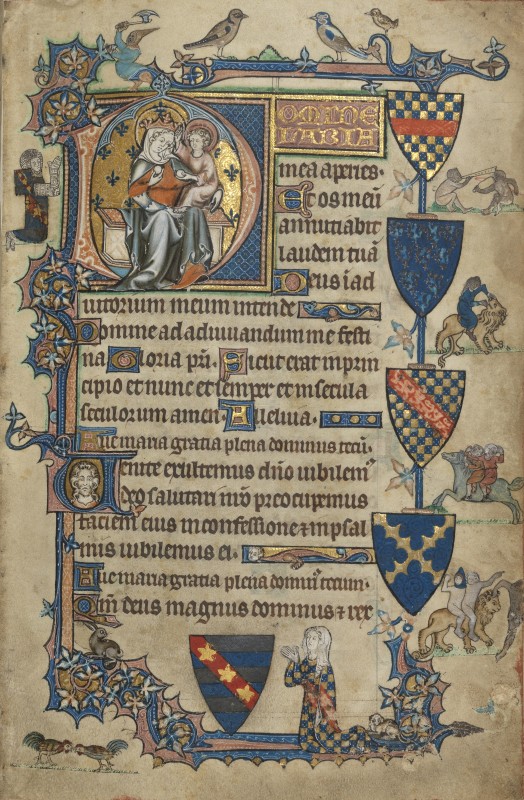 DOMINE
LABIA
mea aperies.
Et os meũ
annũtiabit
laudem tuã
Deus ĩ ad
iutorium meum intende
Domine ad adiuuandum me festi
na Gloria pr̃i. Sicut erat in prin
cipio et nunc et semper et in secula
seculorum amen. Alleluia.
Aue maria gratia plena dominus tecũ.
Uenite exultemus dño iubilem
deo salutari nr̃o preocupemus
faciem eius in confessione ⁊ in psal
mis iubilemus ei.
Aue maria gratia plena domin' tecum.
Qm̃ deus magnus dominus ⁊ rex